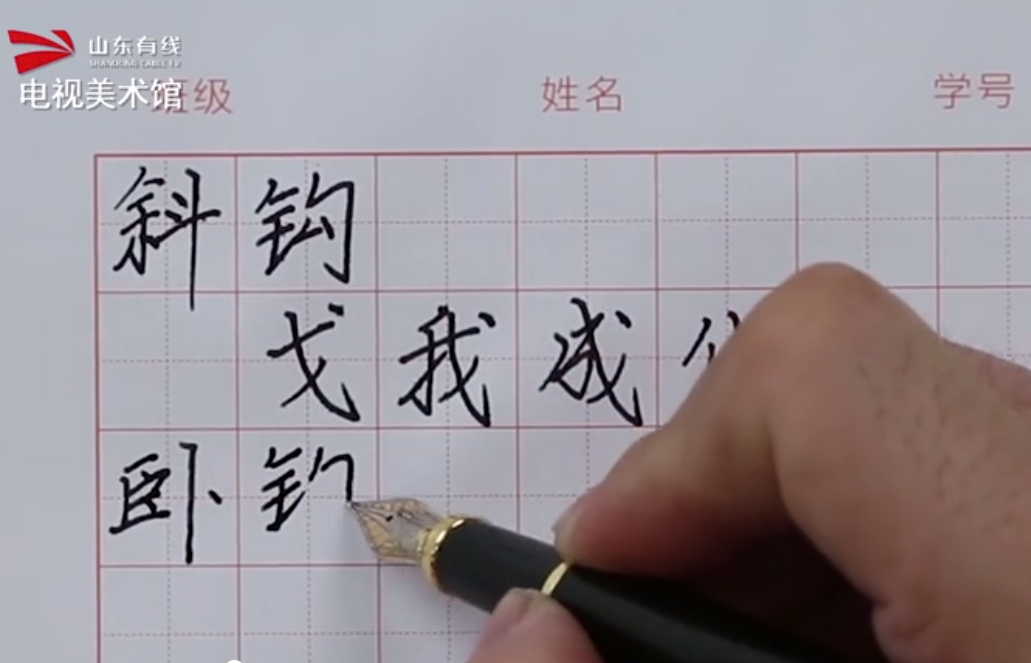 山东有线
SHANDONG CABLE TV
电视美术馆
班级 姓名 学号
斜钩
戈我成
卧